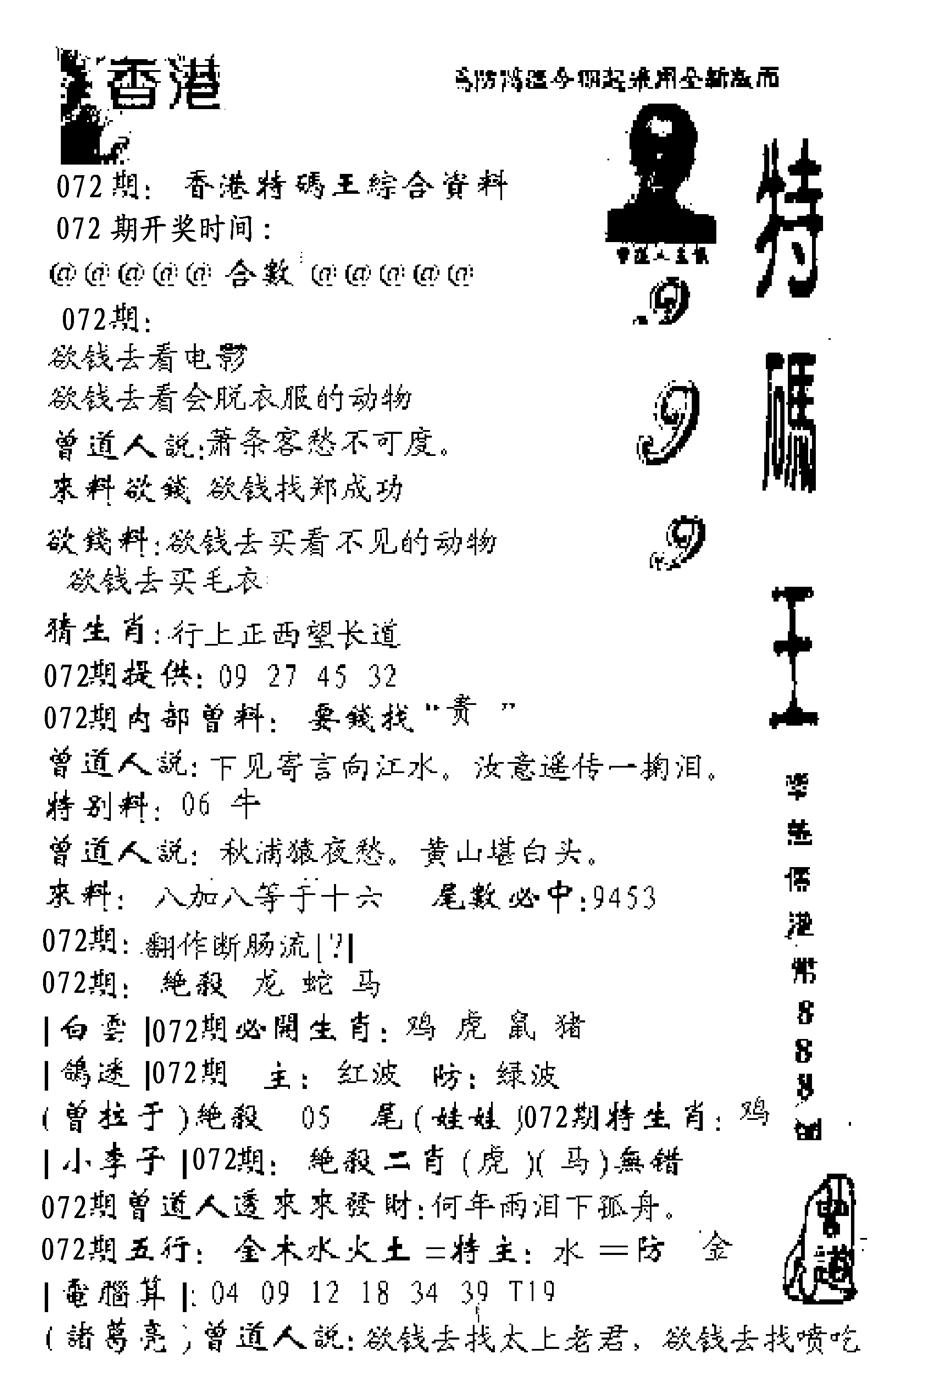 香港
072期： 香港特碼王綜合資料
072 期开奖时间：
@@@@@ 合數 @@@@@
072期：
欲钱去看电影
欲钱去看会脱衣服的动物
曾道人説:萧条客愁不可度。
來料欲錢 欲钱找郑成功
欲錢料:欲钱去买看不见的动物
欲钱去买毛衣
猜生肖:行上正西望长道
072期提供: 09 27 45 32
072期内部曾料： 要錢找“贵 ”
曾道人説: 下见寄言向江水。汝意遥传一掬泪。
特别料: 06 牛
曾道人説： 秋浦猿夜愁。黄山堪白头。
來料： 八加八等于十六 尾數必中:9453
072期: 翻作断肠流[?]
072期： 絶殺 龙 蛇 马
|白雲|072期必開生肖: 鸡 虎 鼠 猪
|鴿迷|072期 主: 红波 防: 绿波
(曾拉于)絶殺 05 尾(娃娃)072期特生肖: 鸡
|小李子|072期： 絶殺二肖(虎)(马)無錯
072期曾道人透來來發財:何年雨泪下孤舟。
072期五行: 金木水火土=特主: 水 =防 金
|電腦算|: 04 09 12 18 34 39 T19
(諸葛亮)曾道人説:欲钱去找太上老君，欲钱去找喷吃
9
9
9
特
碼
王
港
幣
8
8
8